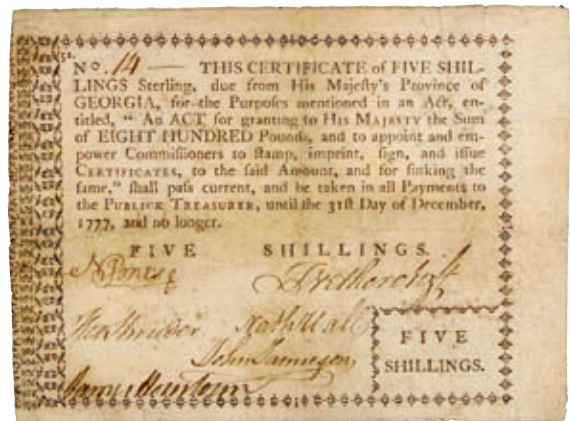 5s.
No. 14 — THIS CERTIFICATE of FIVE SHIL-
LINGS Sterling, due from His Majeſty's Province of
GEORGIA, for the Purposes mentioned in an Act, en-
titled, " An ACT for granting to HIS MAJESTY the Sum
of EIGHT HUNDRED Pounds, and to appoint and em-
power Commiſſioners to ſtamp, imprint, ſign, and iſſue
CERTIFICATES, to the ſaid Amount, and for ſinking the
ſame," ſhall paſs current, and be taken in all Payments to
the PUBLICK TREASURER, until the 31ſt Day of December,
1777, and no longer.
FIVE SHILLINGS.
N Jones
Nath Hall
John Jamieson
FIVE
SHILLINGS.